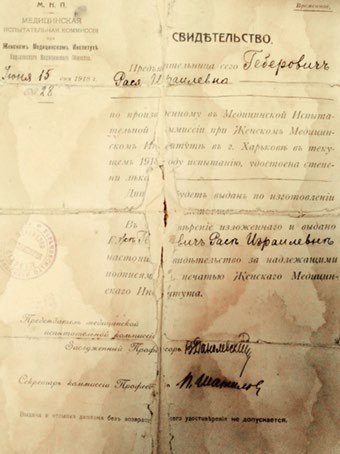 М. Н. П.
МЕДИЦИНСКАЯ
ИСПЫТАТЕЛЬНАЯ КОМИССІЯ
при
Женскомъ Медицинскомъ Институтѣ
Іюня 15 дня 1918 г.
№ 28
Временное.
СВИДѢТЕЛЬСТВО.
Предъявительница сего Геберовичъ
Рася Израилевна
по произведенному въ Медицинской Испыта-
тельной Коммиссіи при Женскомъ Медицин-
скомъ Институтѣ въ г. Харьковѣ въ теку-
щемъ 1918 году испытанію, удостоена степе-
ни лѣкаря
будетъ выданъ по изготовленіи
Въ изложеннаго и выдано
овичъ Расѣ Израилевнѣ
настоящее свидѣтельство за надлежащими
подписями и печатью Женскаго Медицин-
скаго Института.
Предсѣдатель медицинской
испытательной коммиссіи
Заслуженный Профессоръ В. Данилевскій
Секретарь коммиссіи Профессоръ П. Шатиловъ
Выдача безъ удостовѣренія не допускается.